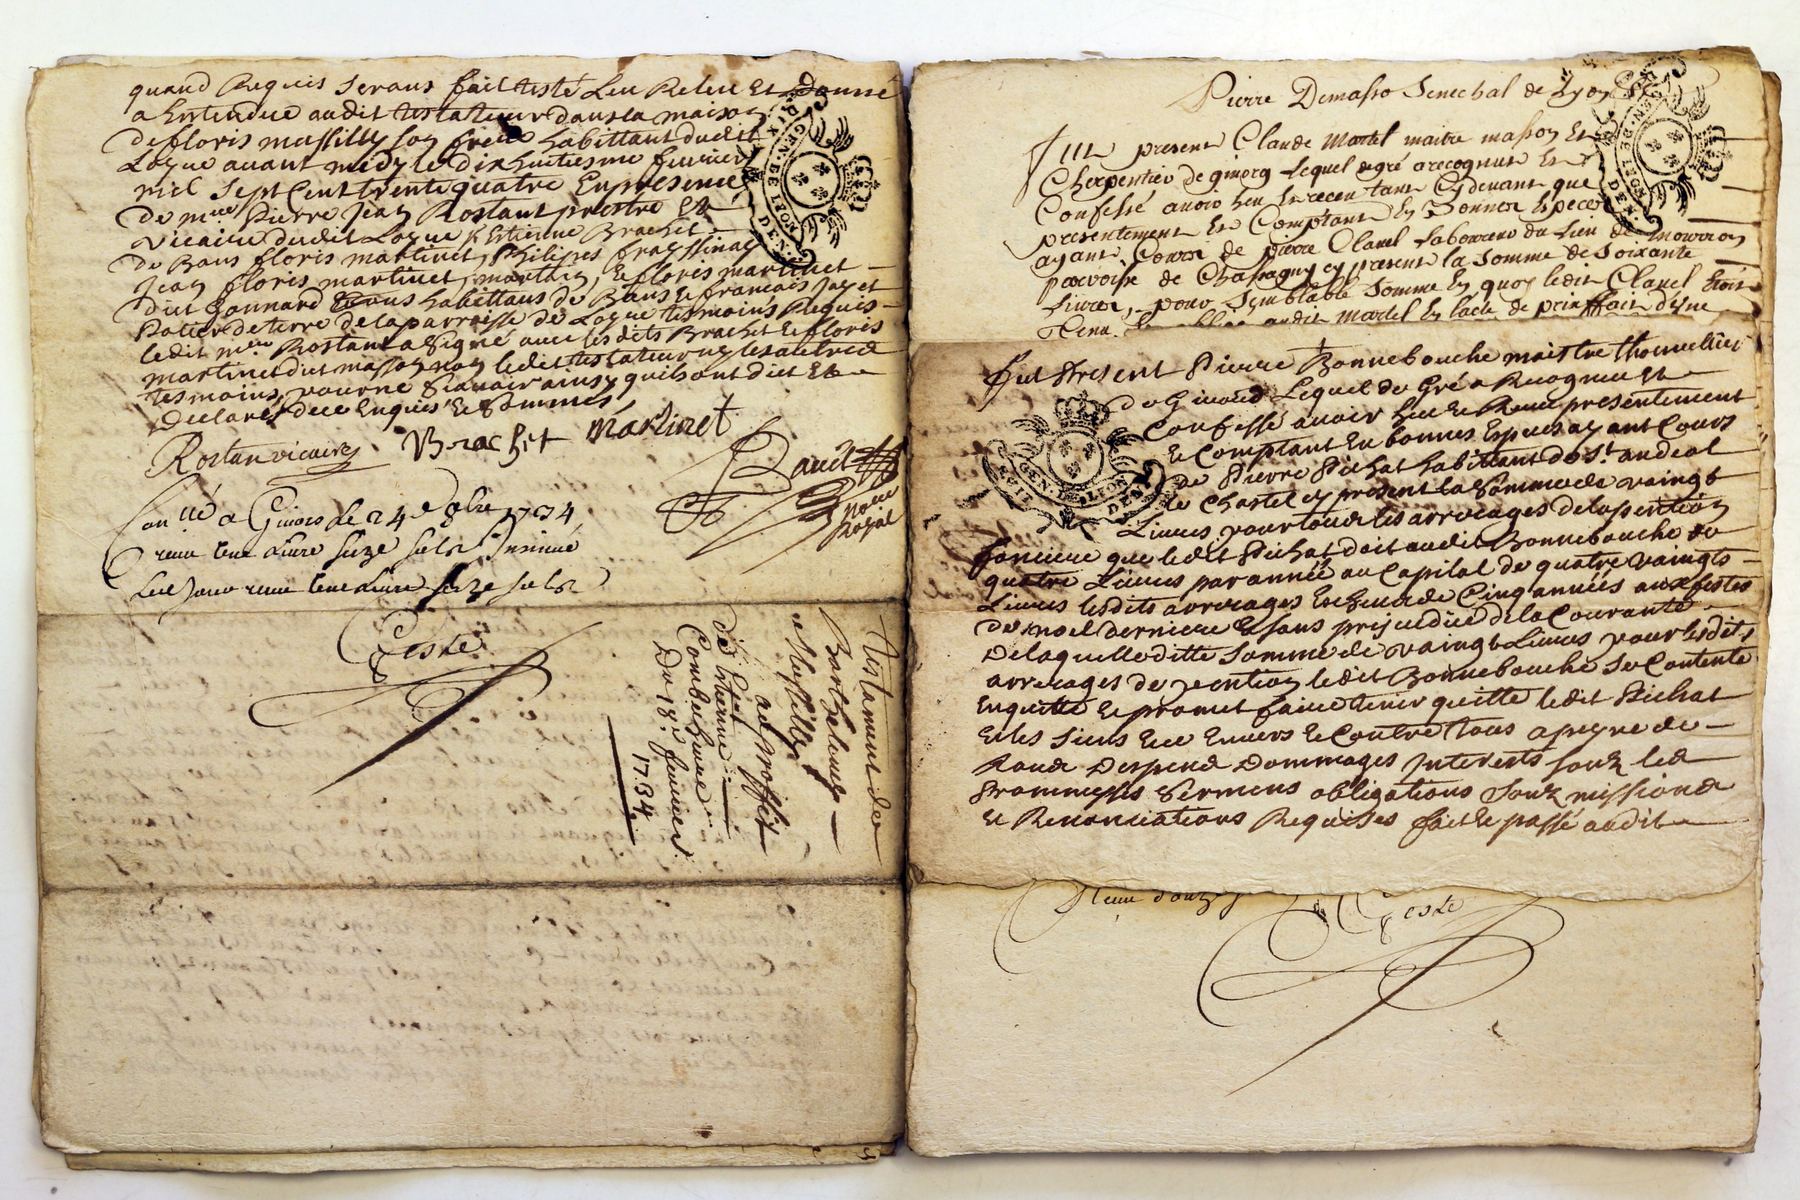 quand Requis Serans fait testé Leu Releu Et Donné
a Entendue audit testateur dans la maison
de floris massilly son frere habittant dudit
Loyue avant midy le dix huitiesme fevrier
mil Sept Cent trente quatre En presence
De mre Pierre Jean Rostant prestre Et
vicaire dudit Loyue Estienne Brachet
de Bans floris martinet, Philipes frayssinay
Jean floris martinet, marthin, & flores martinet
dict Gonnard tous habittans de Bans & francois Jayet
Patier deterre delaparroisse de Loyue tesmoins Requis
ledit mre Rostant a Signé avec lesdits Brachet & floris
martinet dict masson non ledit testateur ny les autres
tesmoins pour ne Scavoir ainsy quils ont dict Et
Declaré dece Enquis & Sommés
Rostan vicaire Brachet martinet
Daueit
noue
Royal
a Givors le 24e 1734
livre seize sols
livre seize sols
Ceste
testament de
Barthelemy
Massilly
au proffit
de Estienne
Combe
Du 18e fevrier
1734
GEN. DE LYON
Pierre Demasso Senechal de Lyon
Fut present Claude Martel maitre masson Et
Cherpentier de givors lequel de gré a recognut Et
Confessé avoir heu Et receu tant Cydevant que
presentement Et Comptant En Bonnes Especes
ayant Cours de pierre Clavel Laboureur du Lieu de
parroisse de Chassagny cy present la Somme de Soixante
Livres, pour Semblable Somme En quoy ledit Clavel Etoit
Tenu audit Martel
GEN. DE LYON
Fut Present Pierre Bonnebouche maistre thonnellier
De Givord Lequel de Gré a Recogneu Et
Confessé avoir heu & Receu presentement
& Comptant En bonnes Especes ayant Cours
de Pierre Pichat habittant de St. andeol
le Chastel cy present la Somme de vaingt
Livres pour tous les arrerages dela pention
fonciere que ledit Pichat doit audit Bonnebouche de
quatre Livres par année au Capital de quatre vaingts
Livres lesdits arrerages Eschus de Cinq années aux festes
de noel derniere & sans prejudice dela Courante
Delaquelle ditte Somme de vaingt Livres pour lesdits
arrerages de pention ledit Bonnebouche Se Contente
Enquitte & promet faire tenir quitte ledit Pichat
Et les Siens Envers & Contre tous a peyne de
tous Despens Dommages Interests souz les
Prommesses Sermens obligations Souz missions
& Renonciations Requises fait & passé audit
GEN. DE LYON
Ceste